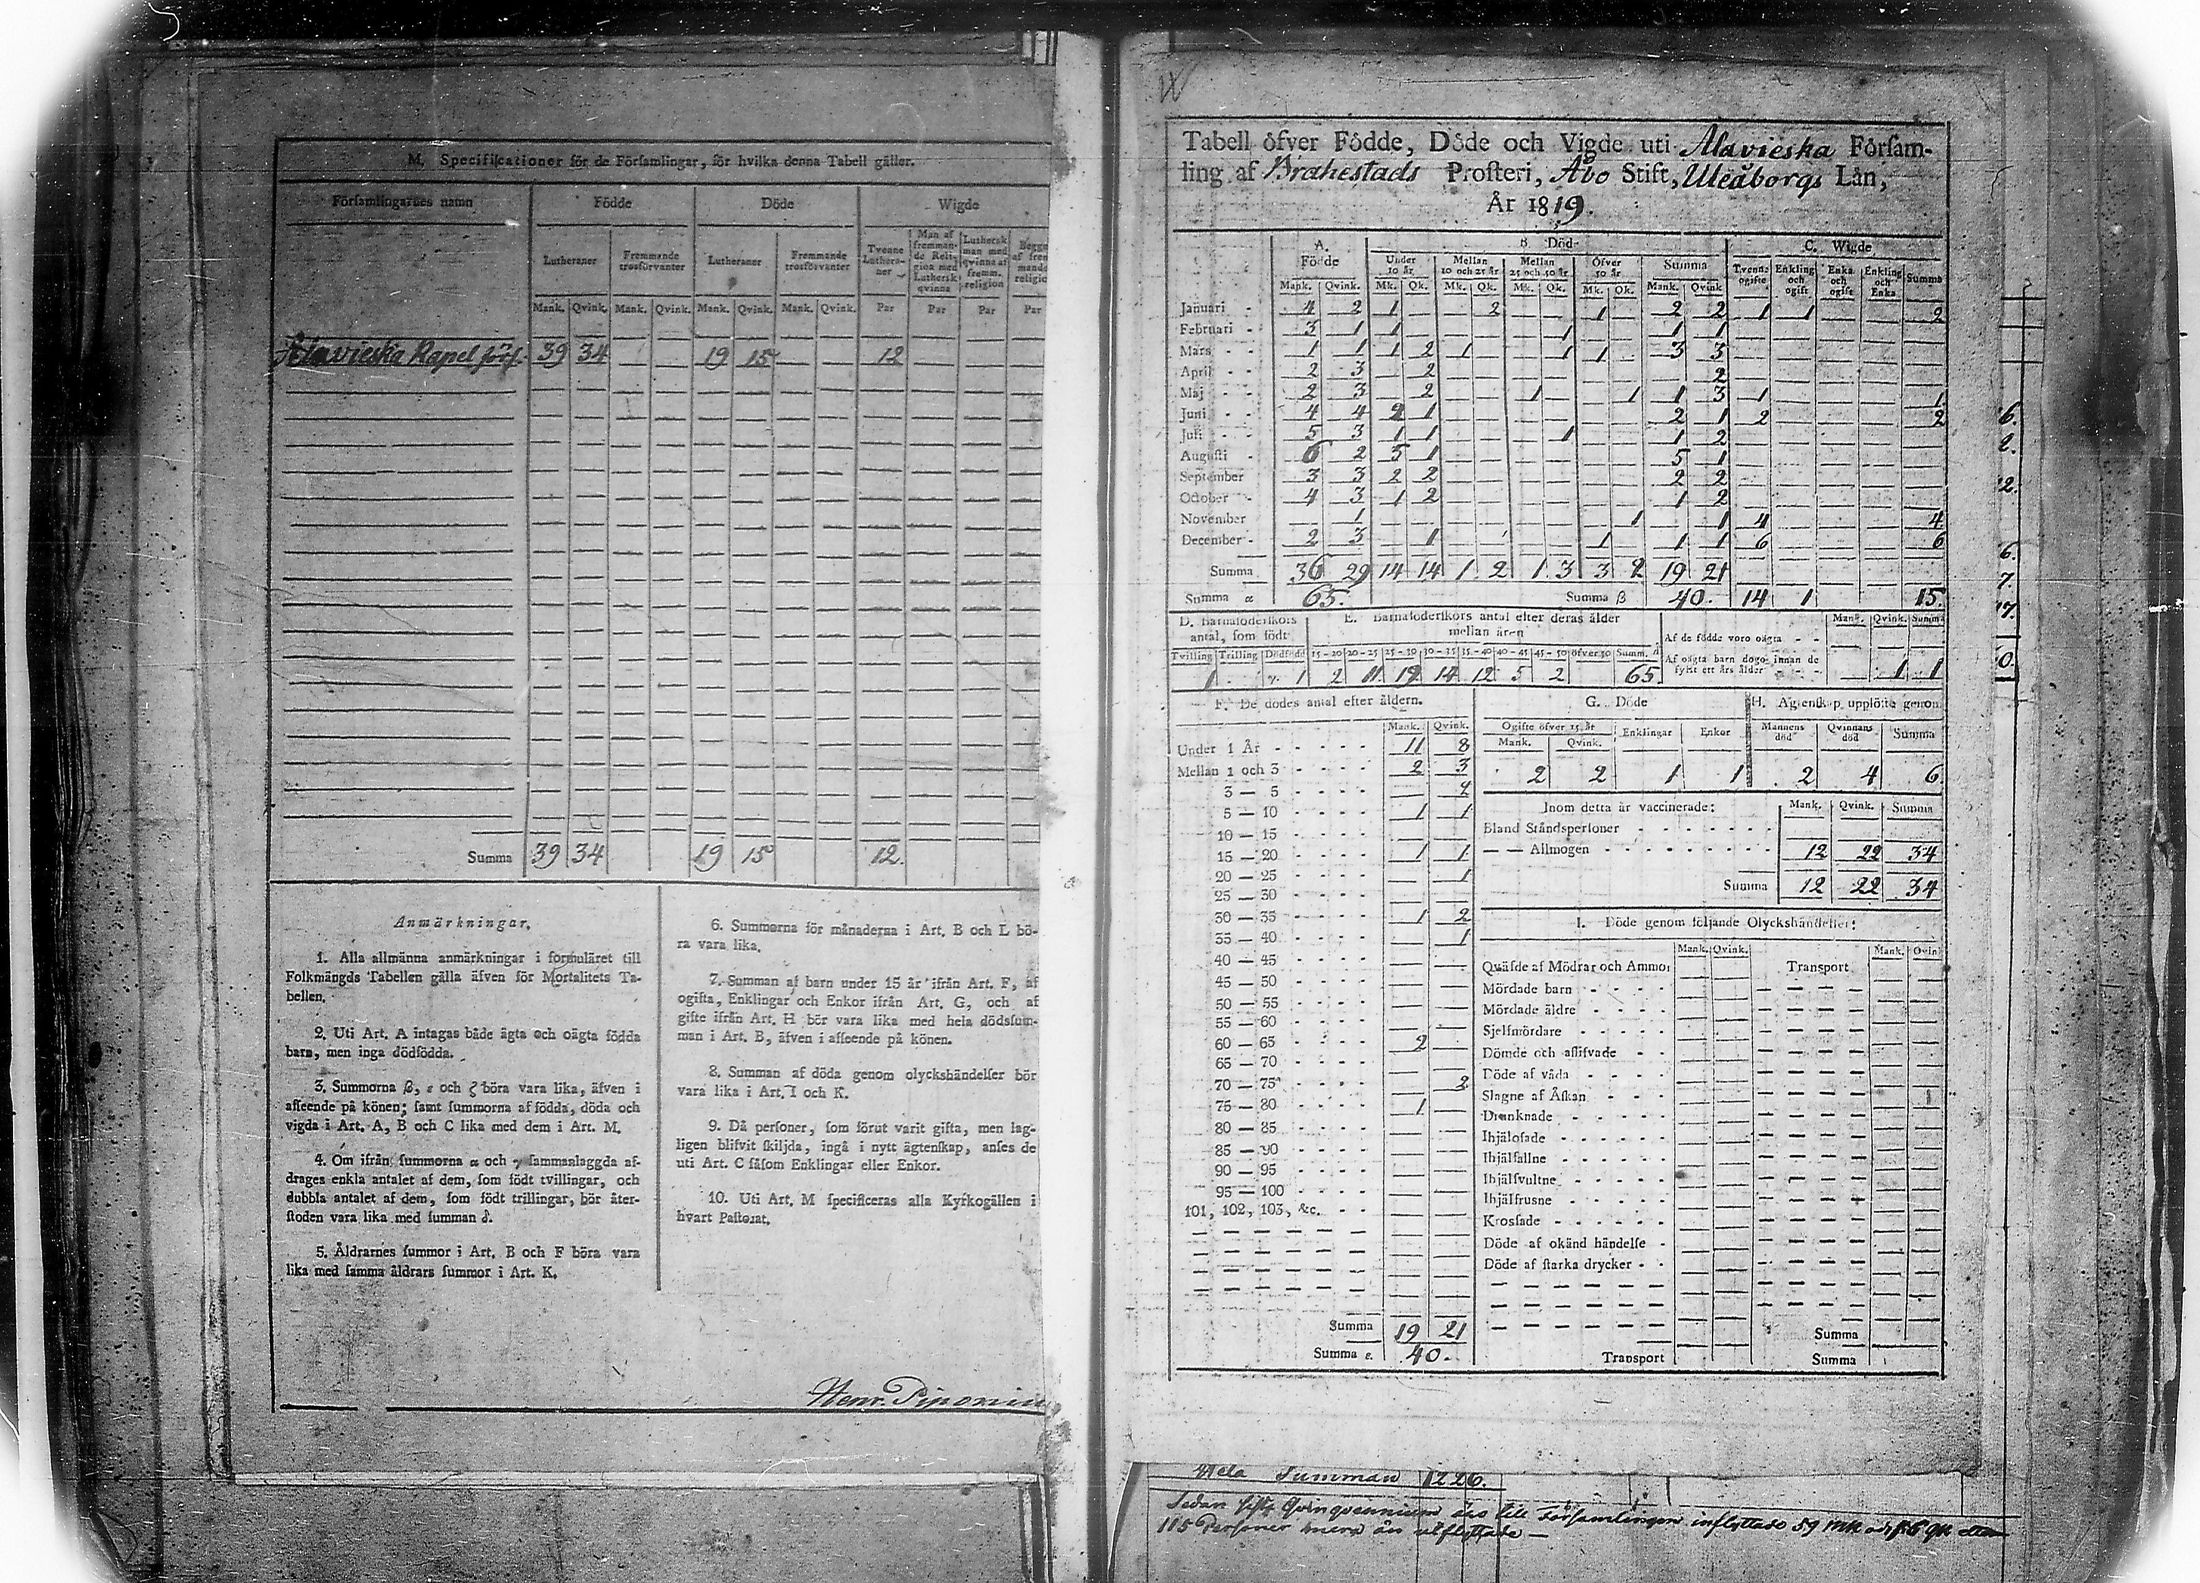 M. Specificationer för de Församlingar, för hvilka denna Tabell gäller.
Församlingarnes namn Födde Döde Wigde
Lutheraner Fremmande trosförvanter Lutheraner Fremmande trosförvanter Tvenne Lutheraner Man af fremmande Religion med Luthersk qvinna Luthersk man med qvinna af fremm. religion
Mank. Qvink. Mank. Qvink. Mank. Qvink. Mank. Qvink. Par Par Par Par
Alavieska Kapel förs. 39 34 19 15 12
Summa 39 34 19 15 12.
Anmärkningar.
1. Alla allmänna anmärkningar i formuläret till
Folkmängds Tabellen gälla äfven för Mortalitets Ta-
bellen.
2. Uti Art. A intagas både ägta och oägta födda
barn, men inga dödfödda.
3. Summorna β, ε och ζ böra vara lika, äfven i
afseende på könen; samt summorna af födda, döda och
vigda i Art. A, B och C lika med dem i Art. M.
4. Om ifrån summorna α och γ sammanlaggda af-
drages enkla antalet af dem, som födt tvillingar, och
dubbla antalet af dem, som födt trillingar, bör åter-
stoden vara lika med summan δ.
5. Åldrarnes summor i Art. B och F böra vara
lika med samma åldrars summor i Art. K.
6. Summorna för månaderna i Art. B och L bö-
ra vara lika.
7. Summan af barn under 15 år ifrån Art. F, af
ogifta, Enklingar och Enkor ifrån Art. G, och af
gifte ifrån Art. H bör vara lika med hela dödssum-
man i Art. B, äfven i afseende på könen.
8. Summan af döda genom olyckshändelser bör
vara lika i Art. I och K.
9. Då personer, som förut varit gifta, men lag-
ligen blifvit skiljda, ingå i nytt ägtenskap, anses de
uti Art. C såsom Enklingar eller Enkor.
10. Uti Art. M specificeras alla Kyrkogällen i
hvart Pastorat.
Henr. Piponiu
Tabell öfver Födde, Döde och Vigde uti Alavieska Församl-
ling af Brahestads Prosteri, Åbo Stift, Uleåborgs Län,
År 1819.
A. Födde B. Döde C. Wigde
Under 10 år Mellan 10 och 25 år Mellan 25 och 50 år Öfver 50 år Summa Tvenne ogifte Enkling och ogift Enka och ogift Enkling och Enka Summa
Mank. Qvink. Mk. Qk. Mk. Qk. Mk. Qk. Mk. Qk. Mank. Qvink
Januari 4 2 1 2 1 2 2 1 1 2
Februari 3 1 1 1 1 1
Mars 1 1 1 2 1 1 1 3 3
April 2 3 2 2
Maj 2 3 2 1 1 1 3 1 1
Juni 4 4 2 1 2 1 2 2
Juli 5 3 1 1 1 1 2
Augusti 6 2 5 1 5 1
September 3 3 2 2 2 2
October 4 3 1 2 1 2
November 1 1 1 4 4
December 2 3 1 1 1 1 6 6
Summa 36 29 14 14 1 2 1 3 3 2 19 21
Summa α 65. Summa β 40. 14 1 15.
D. Barnaföderskors antal, som födt
Tvilling Trilling Dödfödd
1 1
E. Barnaföderskors antal efter deras ålder mellan åren
15-20 20-25 25-30 30-35 35-40 40-45 45-50 öfver 50 Summ. δ
2 11 19 14 12 5 2 65
Mank. Qvink. Summa
Af de födde voro oägta
Af oägta barn dogo innan de fyllt ett års ålder 1 1
F. De dödes antal efter åldern.
Mank. Qvink.
Under 1 År 11 8
Mellan 1 och 3 2 3
3 — 5 2
5 — 10 1 1
10 — 15
15 — 20 1 1
20 — 25 1
25 — 30
30 — 35 1 2
35 — 40 1
40 — 45
45 — 50
50 — 55
55 — 60
60 — 65 2
65 — 70
70 — 75 2
75 — 80 1
80 — 85
85 — 90
90 — 95
95 — 100
101, 102, 103, &c.
Summa 19 21
Summa ε. 40.
G. Döde
Ogifte öfver 15 år Enklingar Enkor
Mank. Qvink.
2 2 1 1
H. Ägtenskap upplöste genom
Mannens död Qvinnans död Summa
2 4 6
Inom detta år vaccinerade: Mank. Qvink. Summa
Bland Ståndspersoner
— — Allmogen 12 22 34
Summa 12 22 34
I. Döde genom följande Olyckshändelser:
Mank. Qvink. Mank. Qvin
Qväfde af Mödrar och Ammor Transport
Mördade barn
Mördade äldre
Sjelfmördare
Dömde och aflifvade
Döde af våda
Slagne af Åskan
Drunknade
Ihjälosade
Ihjälfallne
Ihjälsvultne
Ihjälfrusne
Krossade
Döde af okänd händelse
Döde af starka drycker
Summa
Transport Summa
Hela Summan 1226.
Sedan sista Qvinqvennium äro till Församlingen inflyttade 59 mk och
115 Personer mera än utflyttade —